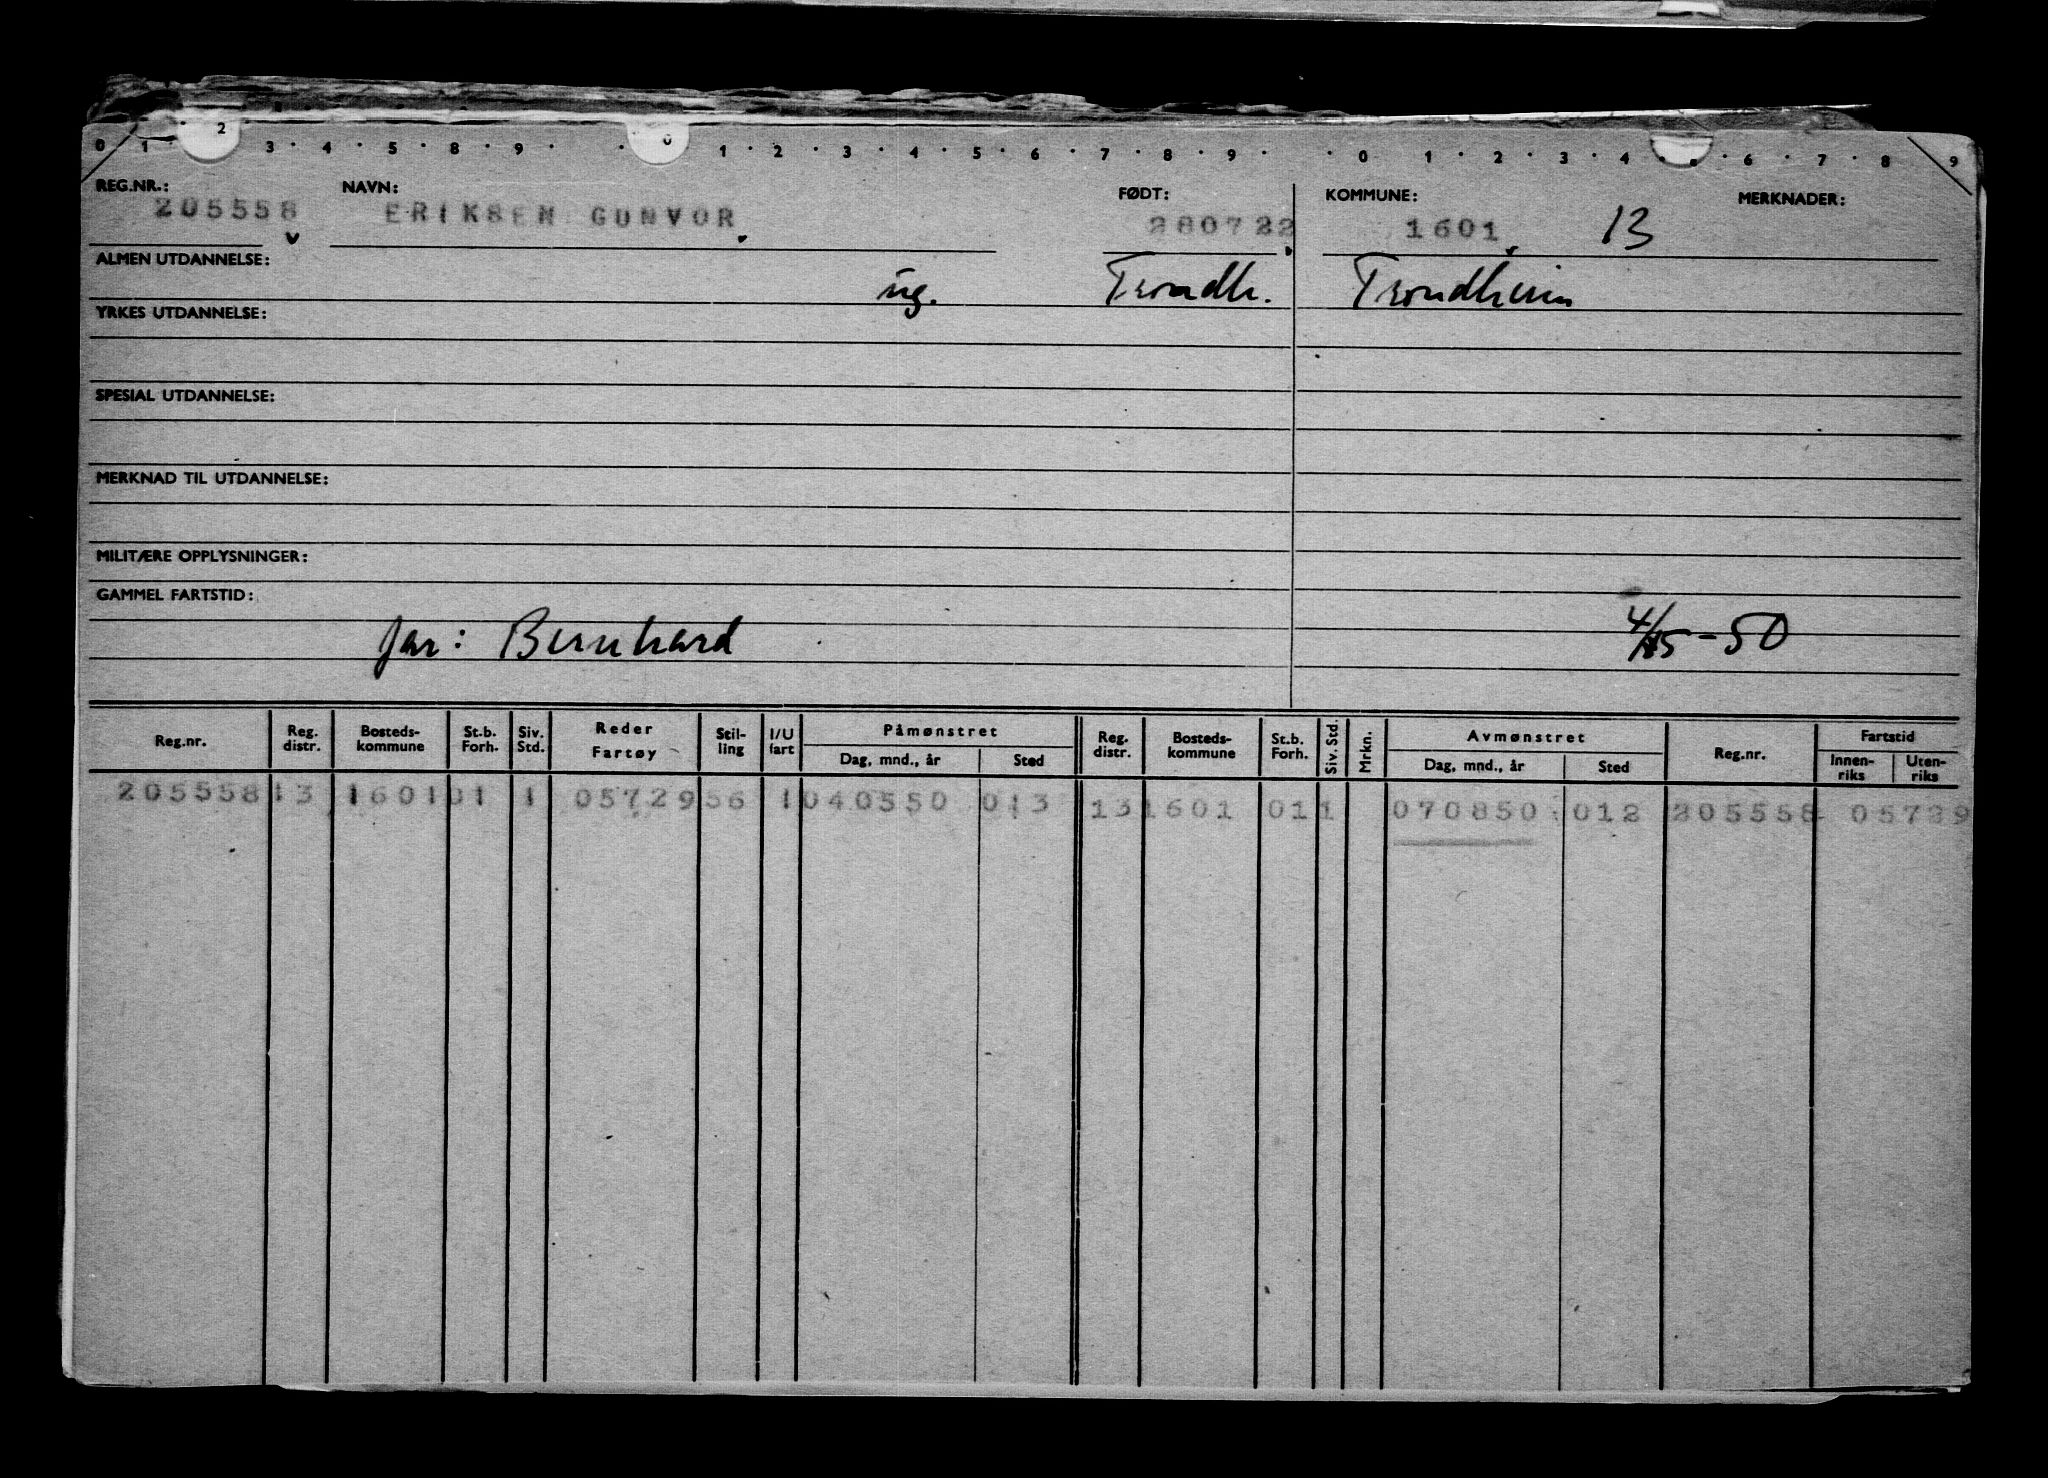 0 1 2 3 · 4 · 5 · 8 · 9 · · 0 1 · 2 · 3 · 4 · 5 · 6 · 7 · 8 · 9 · · 0 1 · 2 · 3 · 4 · · 6 · 7 · 8 9
REG.NR.: NAVN: FØDT: KOMMUNE: MERKNADER:
205558 ERIKSEN GUNVOR 280722 1601 13
ALMEN UTDANNELSE:
ug. Trondh. Trondheim
YRKES UTDANNELSE:
SPESIAL UTDANNELSE:
MERKNAD TIL UTDANNELSE:
MILITÆRE OPPLYSNINGER:
GAMMEL FARTSTID:
far: Bernhard 4/5-50
Reg.nr. Reg. distr. Bosteds-kommune St.b. Forh. Siv. Std. Reder Fartøy Stil-ling I/U fart Påmønstret Dag, mnd., år Sted Reg. distr. Bosteds-kommune St.b. Forh. Siv. Std. Mrkn. Avmønstret Dag, mnd., år Sted Reg.nr. Fartstid Innen-riks Uten-riks
205558 13 1601 01 1 05729 56 1 040550 013 13 1601 01 1 070850 012 205558 05729